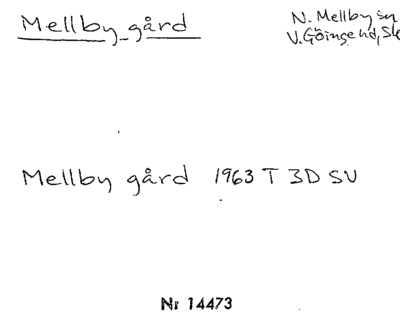 Mellby gård
N. Mellby sn
V. Göinge hd, Sk
Mellby gård 1963 T 3D SV
Nr 14473